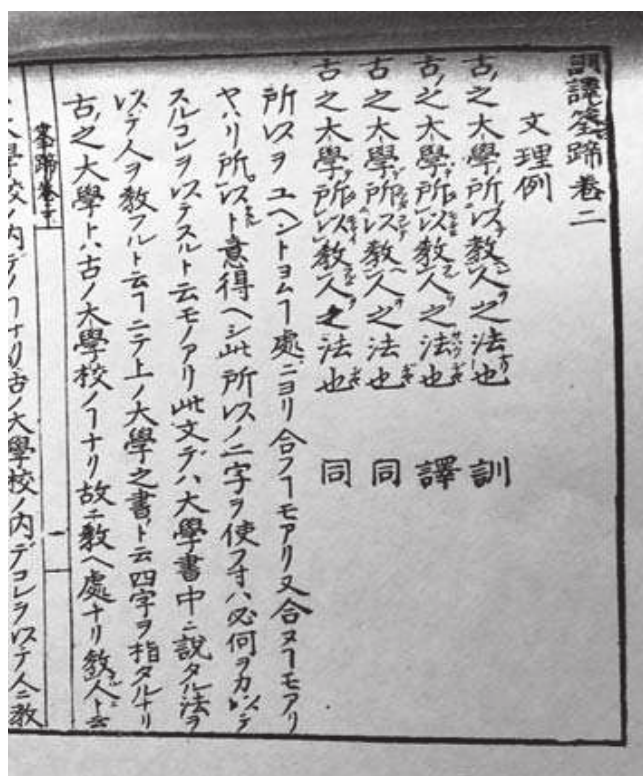 訓譯筌蹄卷二
文理例
古之大學所以教人之法也 訓
古之大學所以教人之法也 譯
古之大學所以教人之法也 同
古之大學所以教人之法也 同
所以ヲユヘントヨムヿ處ニヨリ合フヿモアリ又合ヌヿモアリ
ヤハリ所以ト意得ヘシ此所以ノ二字ヲ使フ寸ハ必何ヲカ以テ
スルコレヲ以テスルト云モノアリ此文デハ大學書中ニ說タル法ヲ
以テ人ヲ教フルト云フニテ上ノ大學之書ト云四字ヲ指タルナリ
古之大學トハ古ノ大學校ノヿナリ故ニ教ヘ處ナリ教人ト云
筌蹄卷 一
大學校ノ内デノヿナリ古ノ大學校ノ内デコレヲ以テ人ニ教